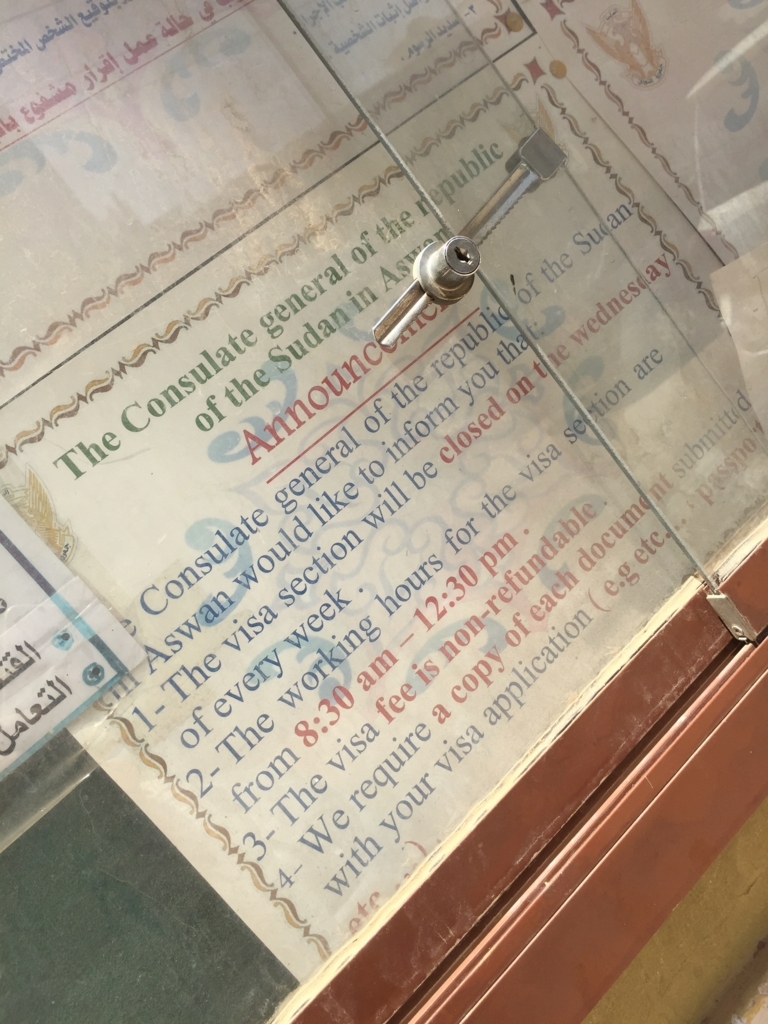 في حالة عمل إقرار مشفوع
اثبات الشخصية
The Consulate general of the republic
of the Sudan in Aswan
Announcement
Consulate general of the republic of the Sudan-
in Aswan would like to inform you that:
1- The visa section will be closed on the wednesday
of every week .
2- The working hours for the visa section are
from 8:30 am – 12:30 pm .
3- The visa fee is non-refundable .
4- We require a copy of each document submitted
with your visa application ( e.g etc... : passpo
etc...)
التعامل